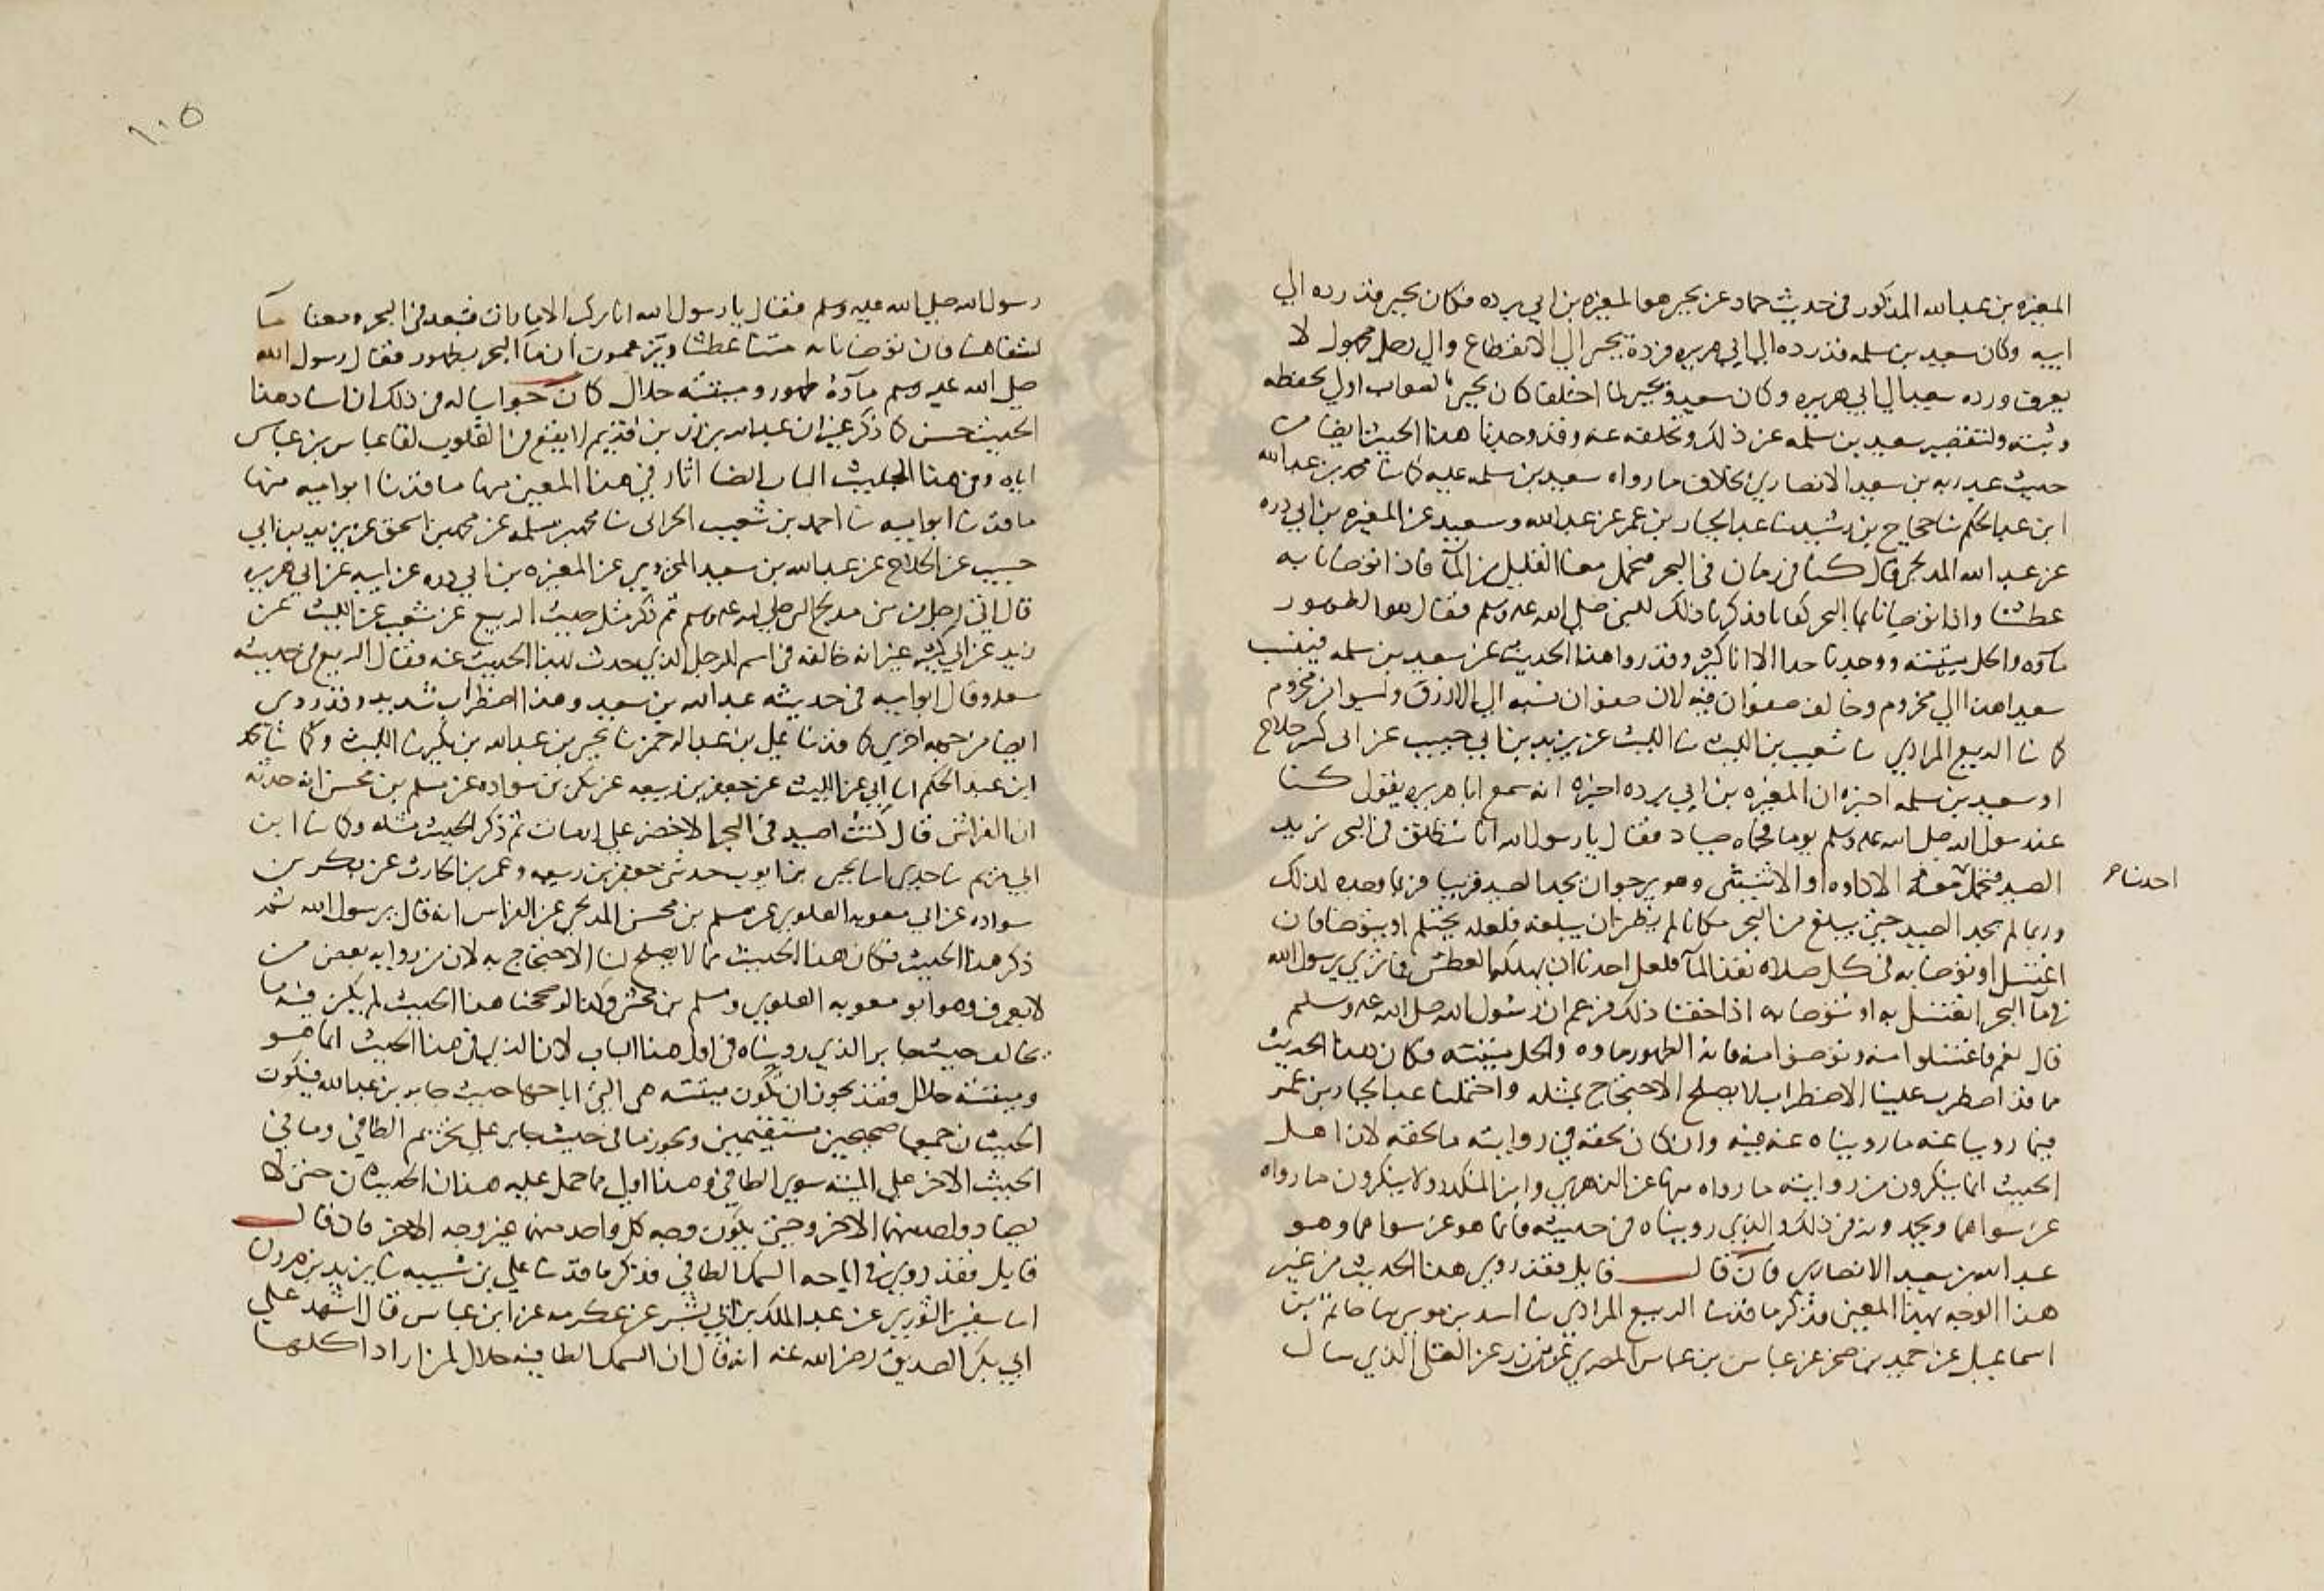 المغيره بن عبد الله المذكور في حديث حماد عن يحيى هو المغيره بن ابي برده فكان يحيى قد رده الي
ابيه وكان سعيد بن سلمه قد رده الي ابي هريره فرده يحيى الي الانقطاع والي رجل مجهول لا
يعرف ورده سعيد الي ابي هريره وكان سعيد ويحيى لما اختلفا كان يحيى بالصواب اولي لحفظه
وثبته ولتقصير سعيد بن سلمه عن ذلك وتخلفه عنه وقد وجدنا هذا الحديث ايضا من
حديث عبد ربه بن سعيد الانصاري بخلاف ما رواه سعيد بن سلمه عليه كما ثنا محمد بن عبد الله
ابن عبد الحكم ثنا حجاج بن رشدين ثنا عبد الجبار بن عمر عن عبد الله وسعيد عن المغيره بن ابي برده
عن عبد الله المدلجي قال كنا في زمان في البحر فنحمل معنا القليل من المآ فاذا توضانا به
عطشنا واذا توضانا بما البحر كفانا فذكرنا ذلك للنبي صلي الله عليه وسلم فقال هو الطهور
مآوه والحل ميتته ووجدنا الاناكثر وقد رووا هذا الحديث عن سعيد بن سلمه فينسب
سعيد هذا الي مخزوم وخالف صفوان فيه لان صفوان نسبه الي الازرق وليسوا من مخزوم
كما ثنا الربيع المرادي ثنا شعيب بن الليث ثنا الليث عن يزيد بن ابي حبيب عن ابي كثير جلاح
ان سعيد بن سلمه اخبره ان المغيره بن ابي برده اخبره انه سمع ابا هريره يقول كنا
عند رسول الله صلي الله عليه وسلم يوما فجاه صياد فقال يا رسول الله انا ننطلق في البحر نريد
الصيد فيحمل معه الاداوه او الاثنتين وهو يرجو ان يجد الصيد قريبا فربما وجده كذلك
احدنا ح
وربما لم يجد الصيد حتي يبلغ من البحر مكانا لم يظن ان يبلغه فلعله يحتلم او يتوضا فان
اغتسل او توضا به في كل صلاه نفد المآ فلعل احدنا ان يهلكه العطش فما تري يرسول الله
في مآ البحر انغتسل به او نتوضا به اذا خفنا ذلك فزعم ان رسول الله صلي الله عليه وسلم
قال نعم فاغتسلوا منه وتوضوا منه فانه الطهور ماوه والحل ميتته فكان هذا الحديث
مما قد اضطرب علينا الاضطراب لا يصلح الاحتجاج بمثله واحتملنا عبد الجبار بن عمر
فيما روينا عنه ما رويناه عنه فيه وان كان لحقه في روايته ما لحقه لان اهل
الحديث انما ينكرون من روايته ما رواه منها عن الزهري وابن المنكدر ولا ينكرون ما رواه
عن سواهما ويحمدونه في ذلك والذي رويناه في حديثه فانما هو عن سواهما وهو
عبد الله بن سعيد الانصاري فان قال قايل فقد روي هذا الحديث من غير
هذا الوجه بهذا المعني فذكر ما قد ثنا الربيع المرادي ثنا اسد بن موسي ثنا حاتم بن
اسماعيل عن حميد بن صخر عن عباس بن عباس المصري عن عبد الله بن زرير عن العركي الذي سال
١٠٥
رسول الله صلي الله عليه وسلم فقال يا رسول الله انا نركب الارماث فنبعد في البحر ومعنا مآ
لشفاهنا فان توضانا به متنا عطشا ويزعمون ان مآ البحر بطهور فقال رسول الله
صلي الله عليه وسلم مآوه طهور وميتته حلال كان جوابنا له في ذلك ان اسناد هذا
الحديث حسن كما ذكر غير ان عبد الله بن زرير بن قديم لا يقع في القلوب لقا عباس بن عباس
اياه وفي هذا الحديث الباب ايضا اثار في هذا المعني منها ما قد ثنا ابو اميه منها
ما قد ثنا ابو اميه ثنا احمد بن شعيب الحراني ثنا محمد بن سلمه عن محمد بن اسحق عن يزيد بن ابي
حبيب عن الجلاح عن عبد الله بن سعيد المخزومي عن المغيره بن ابي برده عن ابيه عن ابي هريره
قال اتي رجل من بني مدلج النبي صلي الله عليه وسلم ثم ذكر مثل حديث الربيع عن شعيب عن الليث عن
يزيد عن ابي كثير غير انه خالفه في اسم الرجل الذي حدث بهذا الحديث عنه فقال الربيع في حديثه
سعيد وقال ابو اميه في حديثه عبد الله بن سعيد وهذا اضطراب شديد وقد روي
ايضا من جهه اخري كما قد ثنا علي بن عبد الرحمن ثنا يحيي بن عبد الله بن بكير ثنا الليث وكما ثنا محمد
ابن عبد الحكم انا ابي عن الليث عن جعفر بن ربيعه عن بكر بن سواده عن مسلم بن مخشي انه حدثه
ان الفراسي قال كنت اصيد في البحر الاخضر علي ارماث ثم ذكر الحديث مثله وكما ثنا ابن
ابي مريم ثنا جدي انا يحيي بن ايوب حدثني جعفر بن ربيعه وعمر بن الحارث عن بكر بن
سواده عن ابي معويه العلوي عن مسلم بن مخشي المدلجي عن الفراسي انه قال يرسول الله ثم
ذكر هذا الحديث فكان هذا الحديث مما لا يصلح لنا الاحتجاج به لان من رواته بعض من
لا يعرف وهو ابو معويه العلوي ومسلم بن مخشي وكنا لو صححنا هذا الحديث لم يكن فيه ما
يخالف حديث جابر الذي رويناه في اول هذا الباب لان الذي في هذا الحديث انما هو
وميتته حلال فقد يجوز ان تكون ميتته هي التي اباحها حديث جابر بن عبد الله فيكون
الحديثان جميعا صحيحين مستقيمين ويكون ما في حديث جابر علي تحريم الطافي وما في
الحديث الاخر علي الميته سوي الطافي وهذا اولي مما حمل عليه هذان الحديثان حتي لا
يضاد واحد منهما الاخر وحتي يكون وجه كل واحد منهما غير وجه الاخر فان قال
قايل فقد روي في اباحه السمك الطافي فذكر ما قد ثنا علي بن شيبه ثنا يزيد بن هرون
انا سفين الثوري عن عبد الملك بن ابي بشير عن عكرمه عن ابن عباس قال اشهد علي
ابي بكر الصديق رضي الله عنه انه قال ان السمك الطافيه حلال لمن اراد اكلها